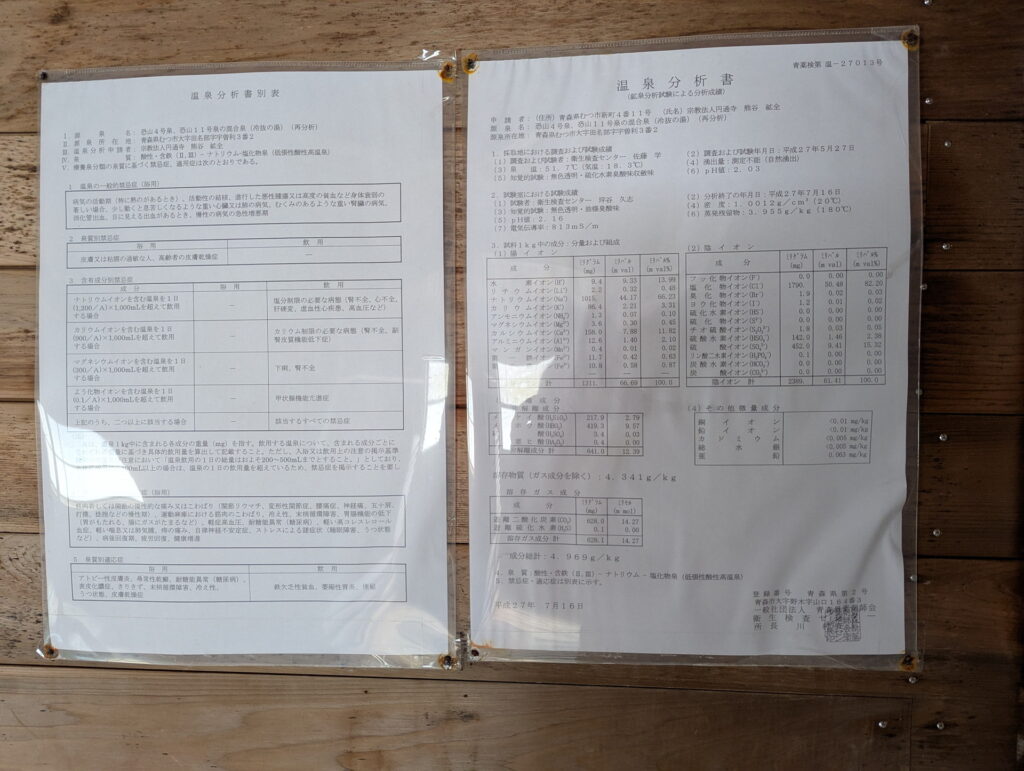 温泉分析書別表
Ⅰ. 源泉名：恐山4号泉、恐山11号泉の混合泉（冷抜の湯）（再分析）
Ⅱ. 源泉所在地：青森県むつ市大字田名部字宇曽利3番2
Ⅲ. 温泉分析申請者：宗教法人円通寺 熊谷 紘全
Ⅳ. 泉質：酸性・含鉄(Ⅱ,Ⅲ)－ナトリウム-塩化物泉（低張性酸性高温泉）
Ⅴ. 療養泉分類の泉質に基づく禁忌症、適用症は次のとおりである。
1 温泉の一般的禁忌症（浴用）
病気の活動期（特に熱のあるとき）、活動性の結核、進行した悪性腫瘍又は高度の貧血など身体衰弱の
著しい場合、少し動くと息苦しくなるような重い心臓又は肺の病気、むくみのあるような重い腎臓の病気、
消化管出血、目に見える出血があるとき、慢性の病気の急性増悪期
2 泉質別禁忌症
浴用 飲用
皮膚又は粘膜の過敏な人、高齢者の皮膚乾燥症 －
3 含有成分別禁忌症
成分 浴用 飲用
ナトリウムイオンを含む温泉を1日
(1,200／A)×1,000mLを超えて飲用
する場合
－
塩分制限の必要な病態（腎不全、心不全、
肝硬変、虚血性心疾患、高血圧など）
カリウムイオンを含む温泉を1日
(900／A)×1,000mLを超えて飲用
する場合
－
カリウム制限の必要な病態（腎不全、副
腎皮質機能低下症）
マグネシウムイオンを含む温泉を1日
(300／A)×1,000mLを超えて飲用
する場合
－
下痢、腎不全
よう化物イオンを含む温泉を1日
(0.1／A)×1,000mLを超えて飲用
する場合
－
甲状腺機能亢進症
上記のうち、二つ以上に該当する場合 － 該当するすべての禁忌症
は、温泉1kg中に含まれる各成分の重量（mg）を指す。飲用する温泉について、含まれる成分ごとに
量に基づき具体的飲用量を算出して記載すること。ただし、入浴又は飲用上の注意の掲示基準
注意において「温泉飲用の1日の総量はおよそ200～500mLまでとすること。」としており、
mL以上の場合は、温泉の1日の飲用量を超えているため、禁忌症を掲示することを要し
症（浴用）
筋肉若しくは関節の慢性的な痛み又はこわばり（関節リウマチ、変形性関節症、腰痛症、神経痛、五十肩、
打撲、捻挫などの慢性期）、運動麻痺における筋肉のこわばり、冷え性、末梢循環障害、胃腸機能の低下
（胃がもたれる、腸にガスがたまるなど）、軽症高血圧、耐糖能異常（糖尿病）、軽い高コレステロール
血症、軽い喘息又は肺気腫、痔の痛み、自律神経不安定症、ストレスによる諸症状（睡眠障害、うつ状態
など）、病後回復期、疲労回復、健康増進
5 泉質別適応症
浴用 飲用
アトピー性皮膚炎、尋常性乾癬、耐糖能異常（糖尿病）、
表皮化膿症、きりきず、末梢循環障害、冷え性、
うつ状態、皮膚乾燥症
鉄欠乏性貧血、萎縮性胃炎、便秘
青薬検第 温－27013号
温泉分析書
（鉱泉分析試験による分析成績）
申請者：(住所) 青森県むつ市新町4番11号 (氏名) 宗教法人円通寺 熊谷 紘全
源泉名：恐山4号泉、恐山11号泉の混合泉（冷抜の湯）（再分析）
源泉所在地：青森県むつ市大字田名部字宇曽利3番2
1. 採取地における調査および試験成績
(1) 調査および試験者：衛生検査センター 佐藤 学
(2) 調査および試験年月日：平成27年5月27日
(3) 泉温：51.7℃（気温：18.3℃）
(4) 湧出量：測定不能（自然湧出）
(5) 知覚的試験：無色透明・硫化水素臭酸味収斂味
(6) pH値：2.03
2. 試験室における試験成績
(1) 試験者：衛生検査センター 坪谷 久志
(2) 分析終了の年月日：平成27年7月16日
(3) 知覚的試験：無色透明・微臭酸味
(4) 密度：1.0012g/cm³(20℃)
(5) pH値：2.16
(6) 蒸発残留物：3.955g/kg(180℃)
(7) 電気伝導率：813mS/m
3. 試料1kg中の成分・分量および組成
(1) 陽イオン
成分 ミリグラム(mg) ミリバル(m val) ミリバル%(m val%)
水素イオン(H⁺) 9.4 9.33 13.99
リチウムイオン(Li⁺) 2.2 0.32 0.48
ナトリウムイオン(Na⁺) 1015. 44.17 66.23
カリウムイオン(K⁺) 86.4 2.21 3.31
アンモニウムイオン(NH₄⁺) 1.2 0.07 0.10
マグネシウムイオン(Mg²⁺) 3.6 0.30 0.45
カルシウムイオン(Ca²⁺) 158.0 7.88 11.82
アルミニウムイオン(Al³⁺) 12.6 1.40 2.10
マンガンイオン(Mn²⁺) 0.4 0.01 0.02
第一鉄イオン(Fe²⁺) 11.7 0.42 0.63
第二鉄イオン(Fe³⁺) 10.8 0.58 0.87
陽イオン計 1311. 66.69 100.0
(2) 陰イオン
成分 ミリグラム(mg) ミリバル(m val) ミリバル%(m val%)
フッ化物イオン(F⁻) 0.0 0.00 0.00
塩化物イオン(Cl⁻) 1790. 50.48 82.20
臭化物イオン(Br⁻) 1.9 0.02 0.03
ヨウ化物イオン(I⁻) 1.2 0.00 0.00
硫化水素イオン(HS⁻) 0.0 0.00 0.00
硫化物イオン(S²⁻) 0.0 0.00 0.00
チオ硫酸イオン(S₂O₃²⁻) 1.8 0.03 0.05
硫酸水素イオン(HSO₄⁻) 142.0 1.46 2.38
硫酸イオン(SO₄²⁻) 452.0 9.41 15.32
リン酸二水素イオン(H₂PO₄⁻) 0.1 0.00 0.00
炭酸水素イオン(HCO₃⁻) 0.0 0.00 0.00
炭酸イオン(CO₃²⁻) 0.0 0.00 0.00
陰イオン計 2389. 61.41 100.0
成分
解離成分
メタケイ酸(H₂SiO₃) 217.9 2.79
メタホウ酸(HBO₂) 419.3 9.57
硫酸(H₂SO₄) 3.4 0.03
0.4 0.00
解離成分計 641.0 12.39
(4) その他微量成分
銅イオン <0.01 mg/kg
鉛イオン <0.01 mg/kg
カドミウム <0.005 mg/kg
総水銀 <0.0005 mg/kg
亜鉛 0.063 mg/kg
溶存物質（ガス成分を除く）：4.341g/kg
溶存ガス成分
成分 ミリグラム(mg) ミリモル(m mol)
遊離二酸化炭素(CO₂) 628.0 14.27
遊離硫化水素(H₂S) 0.1 0.00
溶存ガス成分計 628.1 14.27
成分総計：4.969g/kg
4. 泉質：酸性・含鉄(Ⅱ,Ⅲ)－ナトリウム－塩化物泉（低張性酸性高温泉）
5. 禁忌症・適応症は別表に示す。
平成27年 7月16日
登録番号 青森県第2号
青森市大字野木字山口164番3
一般社団法人 青森県薬剤師会
衛生検査センター
所長